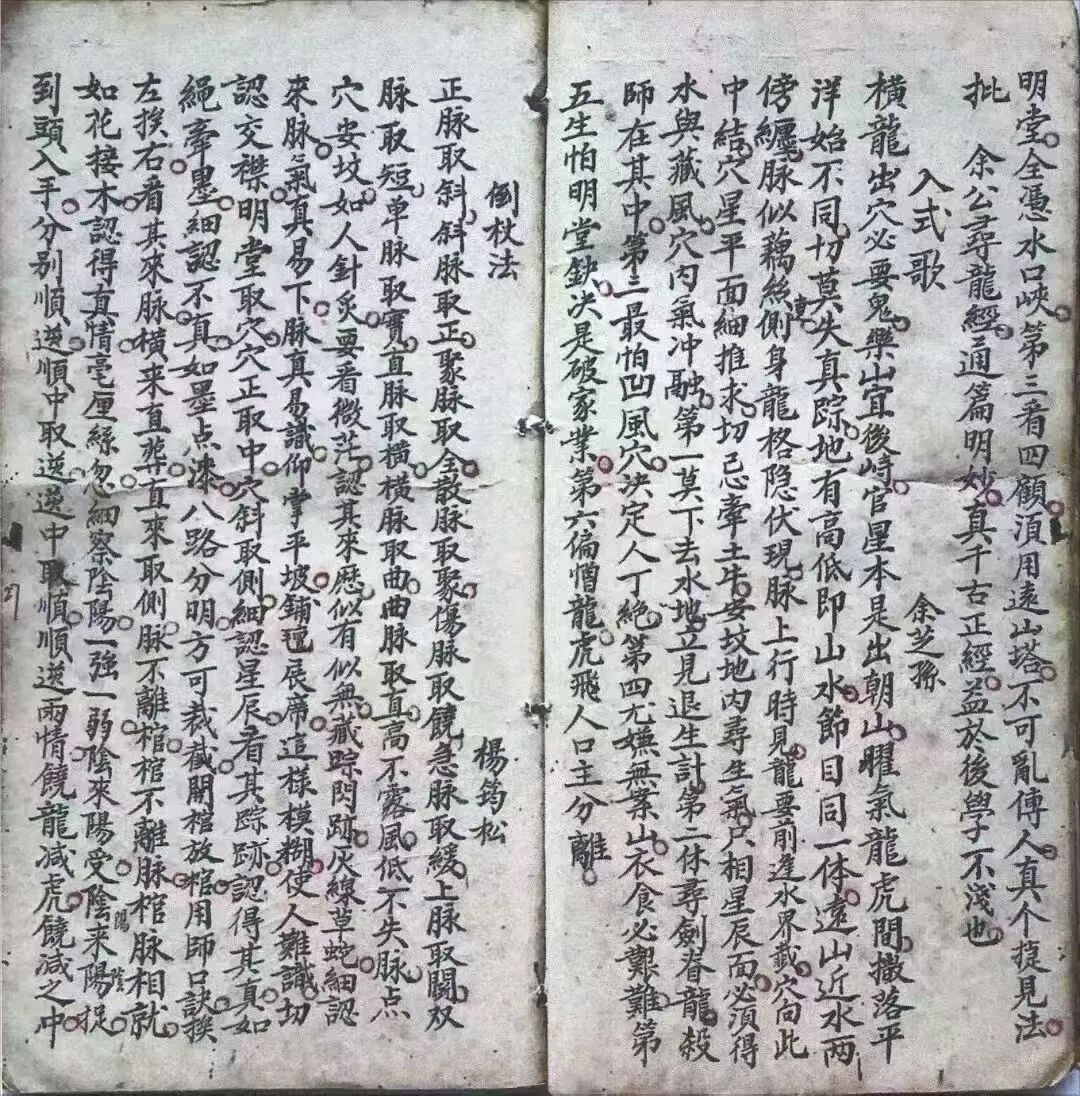 明堂全憑水口峽第三看四顧湏用遠山塔不可亂傳人真个捉見法
批 余公尋龍經通篇明妙真千古正經益於後學不淺也
入式歌 余芝孫
橫龍出穴必要鬼樂山宜後峙官星本是出朝山曜氣龍虎間撒落平
洋始不同切莫失真踪地有高低即山水節目同一体遠山近水兩
傍纏脉似藕絲牽側身龍格隐伏現脉上行時見龍要前逢水界截穴向此
中結穴星平面細推求切忌牽土牛安坟地内尋生氣只相星辰面必湏得
水與藏風穴内氣冲融第一莫下去水地立見退生計第二休尋劍脊龍殺
師在其中第三最怕凹風穴决定人丁絶第四尤嫌無案山衣食必艱難第
五生怕明堂缺决是破家業第六偏憎龍虎飛人口主分離
倒杖法 楊筠松
正脉取斜斜脉取正聚脉取全散脉取聚傷脉取饒急脉取緩上脉取鬪双
脉取短单脉取實直脉取横横脉取曲曲脉取直高不露風低不失脉点
穴安坟如人針炙要看微茫認其來歷似有似無藏踪閃跡灰線草蛇細認
來脉氣真易下脉真易識仰掌平坡鋪氊展席這樣模糊使人難識切
認交襟明堂取穴穴正取中穴斜取側細認星辰看其踪跡認得其真如
繩牽墨細認不真如墨点漆八路分明方可裁截開棺放棺用師口訣挨
左挨右看其來脉橫來直葬直來取側脉不離棺棺不離脉棺脉相就
如花接木認得真情毫厘絲忽細察陰陽一強一弱陰來陽受陰陽來陽陰捉
到頭入手分别順逆順中取逆逆中取順順逆兩情饒龍减虎饒减之中